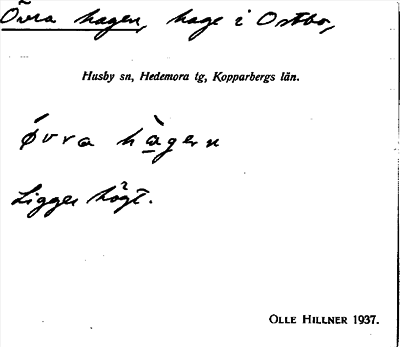 Övra hagen, hage i Ostbo,
Husby sn, Hedemora tg, Kopparbergs län.
ǿvra hàgen
Ligger högt.
OLLE HILLNER 1937.